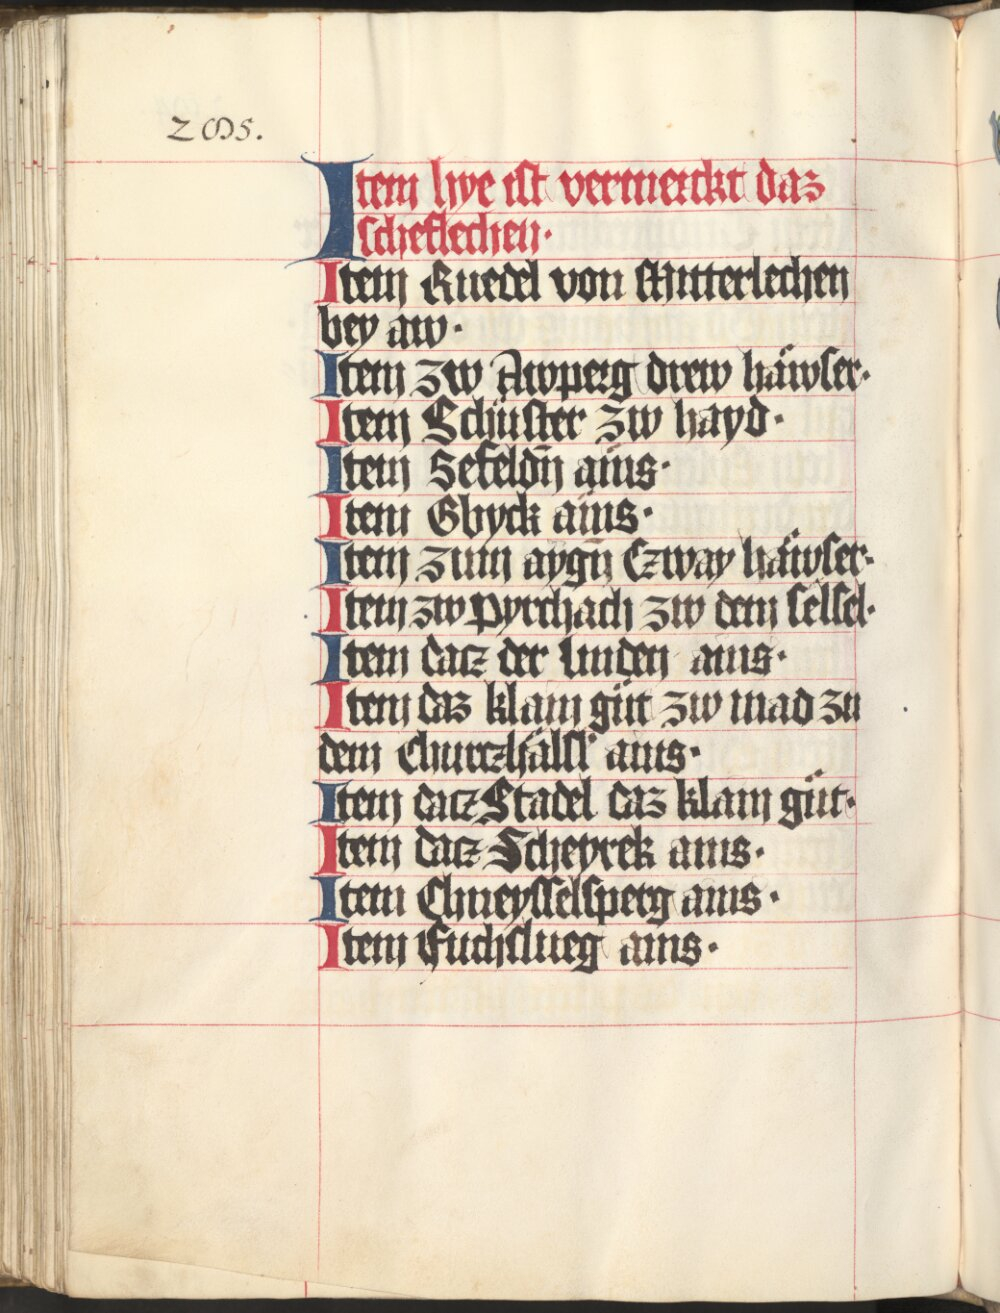 Item hye ist vermerckt daz
scheflechen·
Item Ruedel von Mitterlechen
bey aw·
Item zw Awperg drew häwser·
Item Schuster zw hayd·
Item Sefeldn̄ ains·
Item Gbyck ains·
Item zum aygn̄ Czway häwser·
Item zw Pyrchach zw dem selsel·
Item dacz der linden ains·
Item daz klain güt zw mad zu
dem Churczhälsl ains·
Item dacz Stadel daz klain güt·
Item dacz Scheyrek ains·
Item Chneysselsperg ains·
Item Fuchslueg ains·